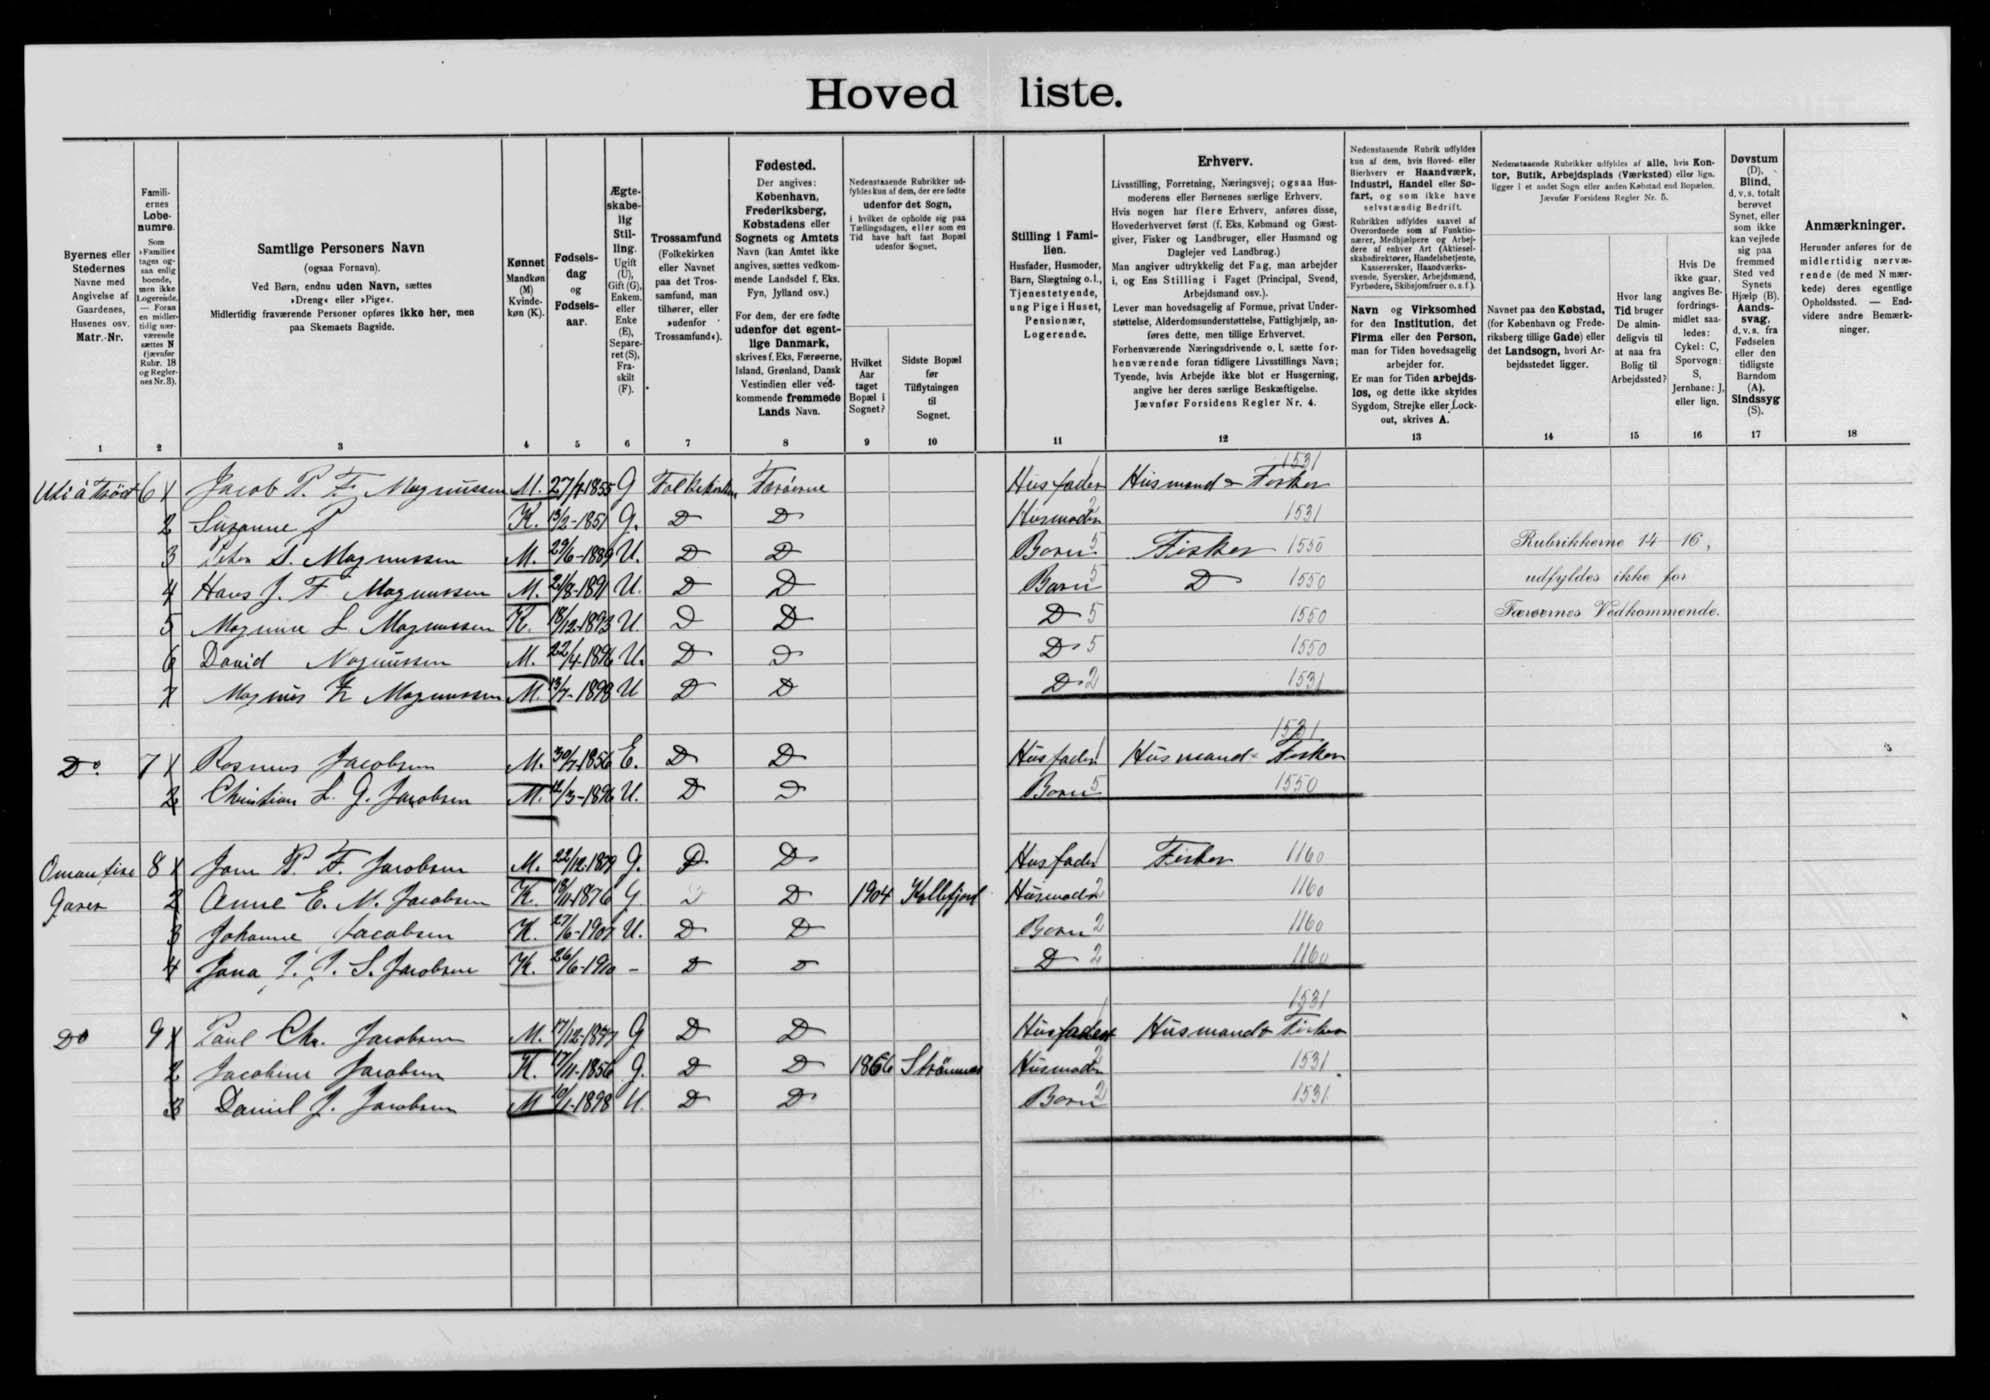 Hoved liste.
Byernes eller
Stedernes
Navne med
Angivelse af
Gaardenes,
Husenes osv.
Matr.-Nr.
1
Famili-
ernes
Løbe-
numre.
Som
»Familie«
tages og-
saa enlig
boende,
men ikke
Logerende.
— Foran
en midler-
tidig nær-
værende
sættes N
(jævnfør
Rubr. 18
og Regler-
nes Nr. 3).
2
Samtlige Personers Navn
(ogsaa Fornavn).
Ved Børn, endnu uden Navn, sættes
»Dreng« eller »Pige«.
Midlertidig fraværende Personer opføres ikke her, men
paa Skemaets Bagside.
3
Kønnet
Mandkøn
(M)
Kvinde-
køn (K).
4
Fødsels-
dag
og
Fødsels-
aar.
5
Ægte-
skabe-
lig
Stil-
ling.
Ugift
(U),
Gift (G),
Enkem.
eller
Enke
(E),
Separe-
ret (S),
Fra-
skilt
(F).
6
Trossamfund
(Folkekirken
eller Navnet
paa det Tros-
samfund, man
tilhører, eller
»udenfor
Trossamfund«).
7
Fødested.
Der angives:
København,
Frederiksberg,
Købstadens eller
Sognets og Amtets
Navn (kan Amtet ikke
angives, sættes vedkom-
mende Landsdel f. Eks.
Fyn, Jylland osv.)
For dem, der ere fødte
udenfor det egent-
lige Danmark,
skrives f. Eks. Færøerne,
Island, Grønland, Dansk
Vestindien eller ved-
kommende fremmede
Lands Navn.
8
Nedenstaaende Rubrikker ud-
fyldes kun af dem, der ere fødte
udenfor det Sogn,
i hvilket de opholde sig paa
Tællingsdagen, eller som en
Tid have haft fast Bopæl
udenfor Sognet.
Hvilket
Aar
taget
Bopæl i
Sognet?
9
Sidste Bopæl
før
Tilflytningen
til
Sognet.
10
Stilling i Fami-
lien.
Husfader, Husmoder,
Barn, Slægtning o.l.,
Tjenestetyende,
ung Pige i Huset,
Pensionær,
Logerende.
11
Erhverv.
Livsstilling, Forretning, Næringsvej; ogsaa Hus-
moderens eller Børnenes særlige Erhverv.
Hvis nogen har flere Erhverv, anføres disse,
Hovederhvervet først (f. Eks. Købmand og Gæst-
giver, Fisker og Landbruger, eller Husmand og
Daglejer ved Landbrug.)
Man angiver udtrykkelig det Fag, man arbejder
i, og Ens Stilling i Faget (Principal, Svend,
Arbejdsmand osv.).
Lever man hovedsagelig af Formue, privat Under-
støttelse, Alderdomsunderstøttelse, Fattighjælp, an-
føres dette, men tillige Erhvervet.
Forhenværende Næringsdrivende o. l. sætte for-
henværende foran tidligere Livsstillings Navn;
Tyende, hvis Arbejde ikke blot er Husgerning,
angive her deres særlige Beskæftigelse.
Jævnfør Forsidens Regler Nr. 4.
12
Nedenstaaende Rubrik udfyldes
kun af dem, hvis Hoved- eller
Bierhverv er Haandværk,
Industri, Handel eller Sø-
fart, og som ikke have
selvstændig Bedrift.
Rubrikken udfyldes saavel af
Overordnede som af Funktio-
nærer, Medhjælpere og Arbej-
dere af enhver Art (Aktiesel-
skabsdirektører, Handelsbetjente,
Kasserersker, Haandværks-
svende, Syersker, Arbejdsmænd,
Fyrbødere, Skibsjomfruer o. s. f.).
Navn og Virksomhed
for den Institution, det
Firma eller den Person,
man for Tiden hovedsagelig
arbejder for.
Er man for Tiden arbejds-
løs, og dette ikke skyldes
Sygdom, Strejke eller Lock-
out, skrives A.
13
Nedenstaaende Rubrikker udfyldes af alle, hvis Kon-
tor, Butik, Arbejdsplads (Værksted) eller lign.
ligger i et andet Sogn eller anden Købstad end Bopælen.
Jævnfør Forsidens Regler Nr. 5.
Navnet paa den Købstad,
(for København og Frede-
riksberg tillige Gade) eller
det Landsogn, hvori Ar-
bejdsstedet ligger.
14
Hvor lang
Tid bruger
De almin-
deligvis til
at naa fra
Bolig til
Arbejdssted?
15
Hvis De
ikke gaar,
angives Be-
fordrings-
midlet saa-
ledes:
Cykel: C,
Sporvogn:
S,
Jernbane: J,
eller lign.
16
Døvstum
(D),
Blind,
d. v. s. totalt
berøvet
Synet, eller
som ikke
kan vejlede
sig paa
fremmed
Sted ved
Synets
Hjælp (B).
Aands-
svag,
d. v. s. fra
Fødselen
eller den
tidligste
Barndom
(A).
Sindssyg
(S).
17
Anmærkninger.
Herunder anføres for de
midlertidig nærvæ-
rende (de med N mær-
kede) deres egentlige
Opholdssted. — End-
videre andre Bemærk-
ninger.
18
1531
6 Jacob P. F. Magnussen M. 1855 G Folkekirken Færøerne Husfader 1 Husmand & Fisker
2 Suzanne P K. 13/2-1851 G. D D Husmoder 2 1531
3 Peter S. Magnussen M. 29/6-1889 U. D D Barn 5 Fisker 1550 Rubrikkerne 14-16,
4 Hans J. F Magnussen M. 21/8-1891 U. D D Barn 5 D 1550 udfyldes ikke for
5 L Magnussen K. 18/12-1893 U. D D D 5 1550 Færøernes Vedkommende.
6 David Magnussen M. 22/4-1896 U. D D D 5 1550
7 Magnus Magnussen M. 13/7-1898 U D D D 2 1531
Do. 7 Rasmus Jacobsen M. 30/7-1856 E. D D Husfader 1 Husmand & Fisker
2 Christian L. G. Jacobsen M. 12/3-1896 U. D D Barn 5 1550
8 P. F. Jacobsen M. 22/12-1879 G. D D Husfader 1 Fisker 1160
2 Anne E. M. Jacobsen K. 1876 G D D 1904 Kollefjord Husmoder 2 1160
3 Johanne Jacobsen K. 27/6-1907 U. D D Barn 2 1160
4 Jana J. J. S. Jacobsen K. 26/6-1910 - D D D 2 1160
1531
Do 9 Paul Chr. Jacobsen M. G D D Husfader Husmand & Fisker
2 Jacobine Jacobsen K. 17/11-1856 G. D D 1866 Husmoder 2 1531
3 Daniel J. Jacobsen M 10/1-1898 U. D D Barn 2 1531